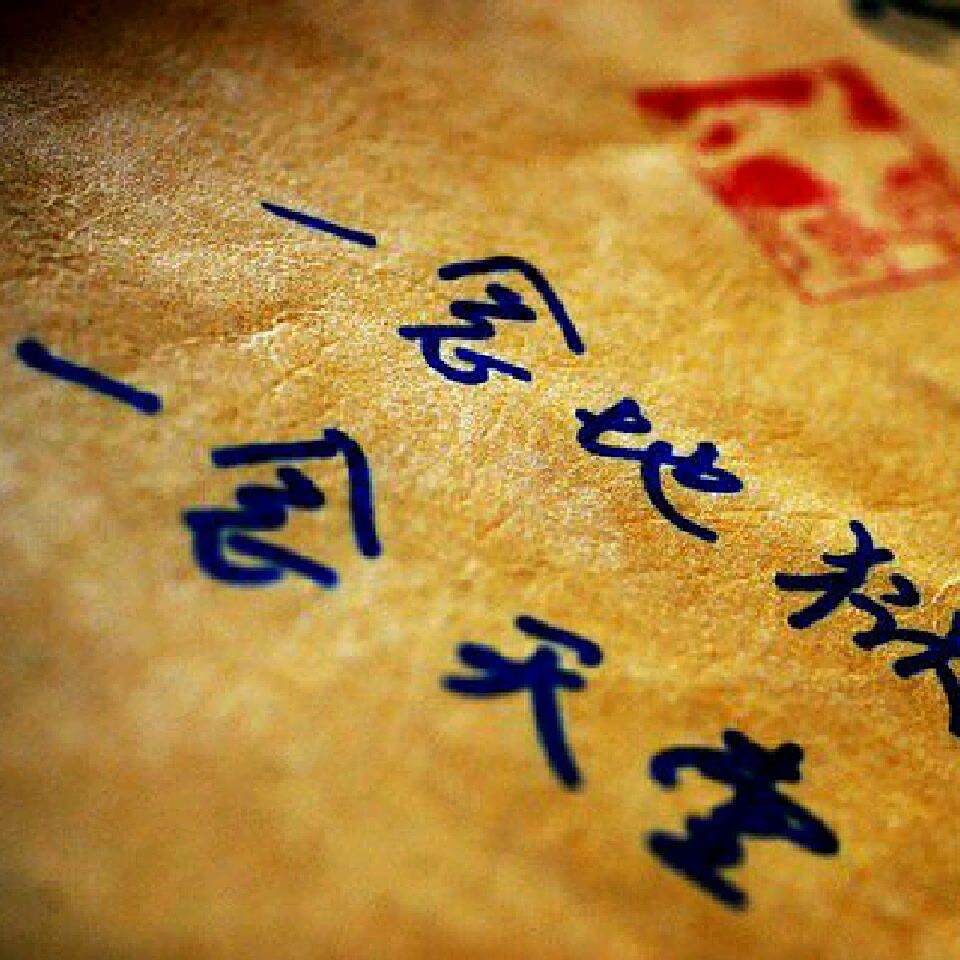 一念天堂
一念地狱